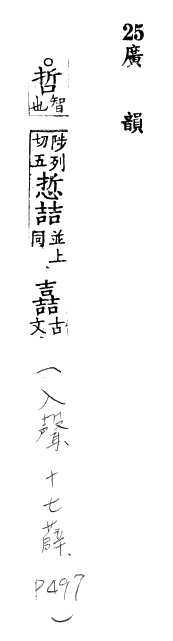 25廣韻
○哲智也陟列切五悊喆並上同嚞古文(入聲十七薛P497)